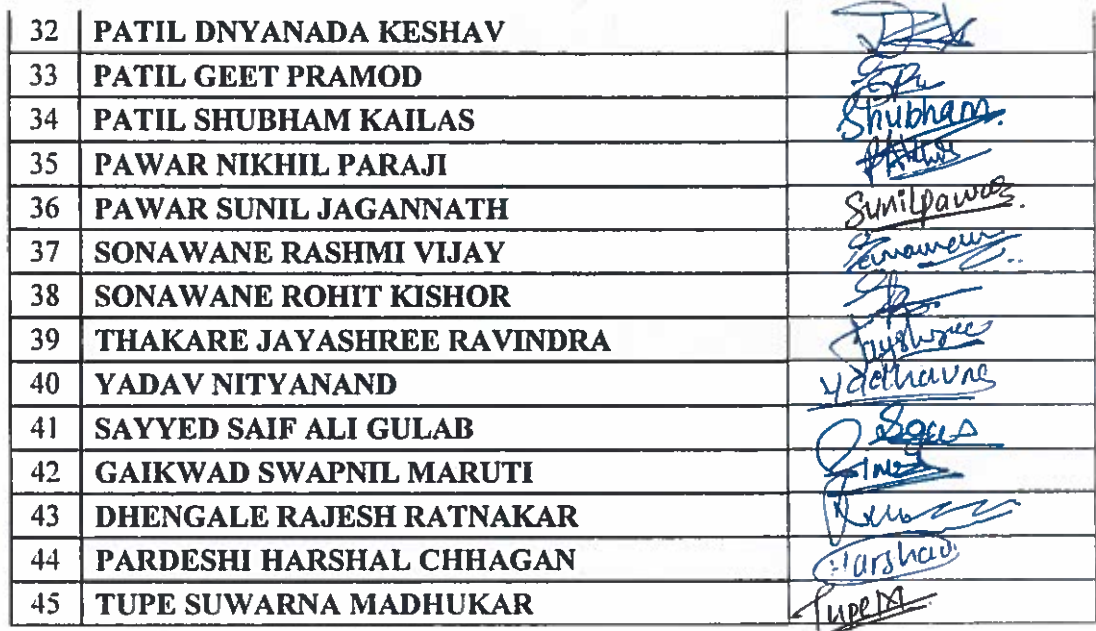 32 PATIL DNYANADA KESHAV
33 PATIL GEET PRAMOD
34 PATIL SHUBHAM KAILAS Shubham.
35 PAWAR NIKHIL PARAJI
36 PAWAR SUNIL JAGANNATH Sunilpawar.
37 SONAWANE RASHMI VIJAY
38 SONAWANE ROHIT KISHOR
39 THAKARE JAYASHREE RAVINDRA Jayshree
40 YADAV NITYANAND
41 SAYYED SAIF ALI GULAB
42 GAIKWAD SWAPNIL MARUTI
43 DHENGALE RAJESH RATNAKAR
44 PARDESHI HARSHAL CHHAGAN Harshal
45 TUPE SUWARNA MADHUKAR